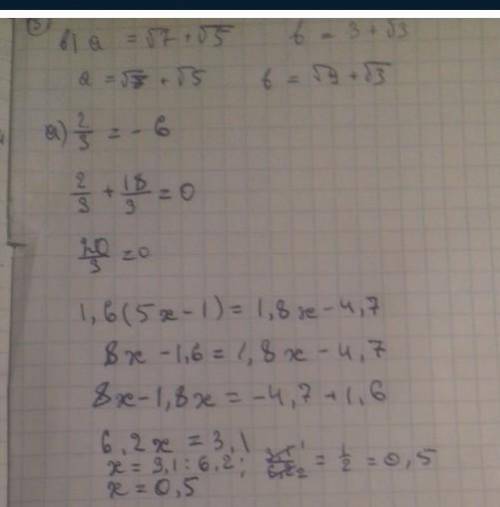 в) a = √7 + √5     b = 3 + √3
a = √7 + √5     b = √9 + √3
a) 2/3 = - 6
2/3 + 18/3 = 0
20/3 = 0
1,6(5x - 1) = 1,8x - 4,7
8x - 1,6 = 1,8x - 4,7
8x - 1,8x = -4,7 + 1,6
6,2x = 3,1
x = 3,1 : 6,2; = 1/2 = 0,5
x = 0,5